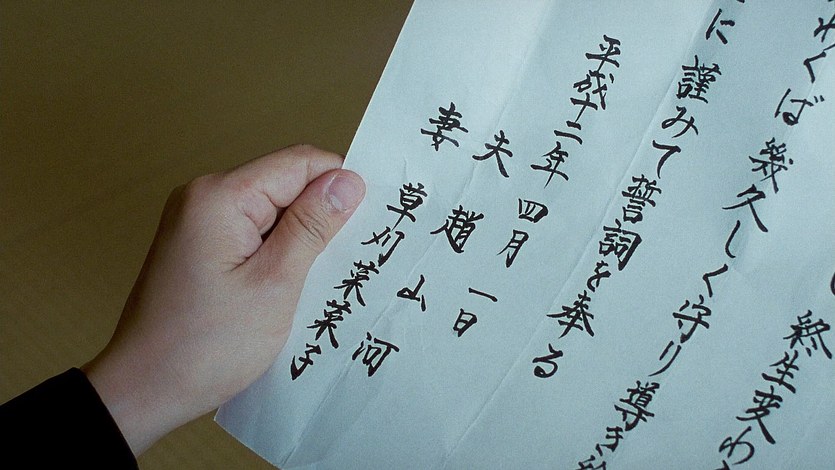 終生変わ
わくば幾久しく守り導き給
に謹みて誓詞を奉る
平成十二年四月一日
夫 趙山河
妻 草刈菜菜子